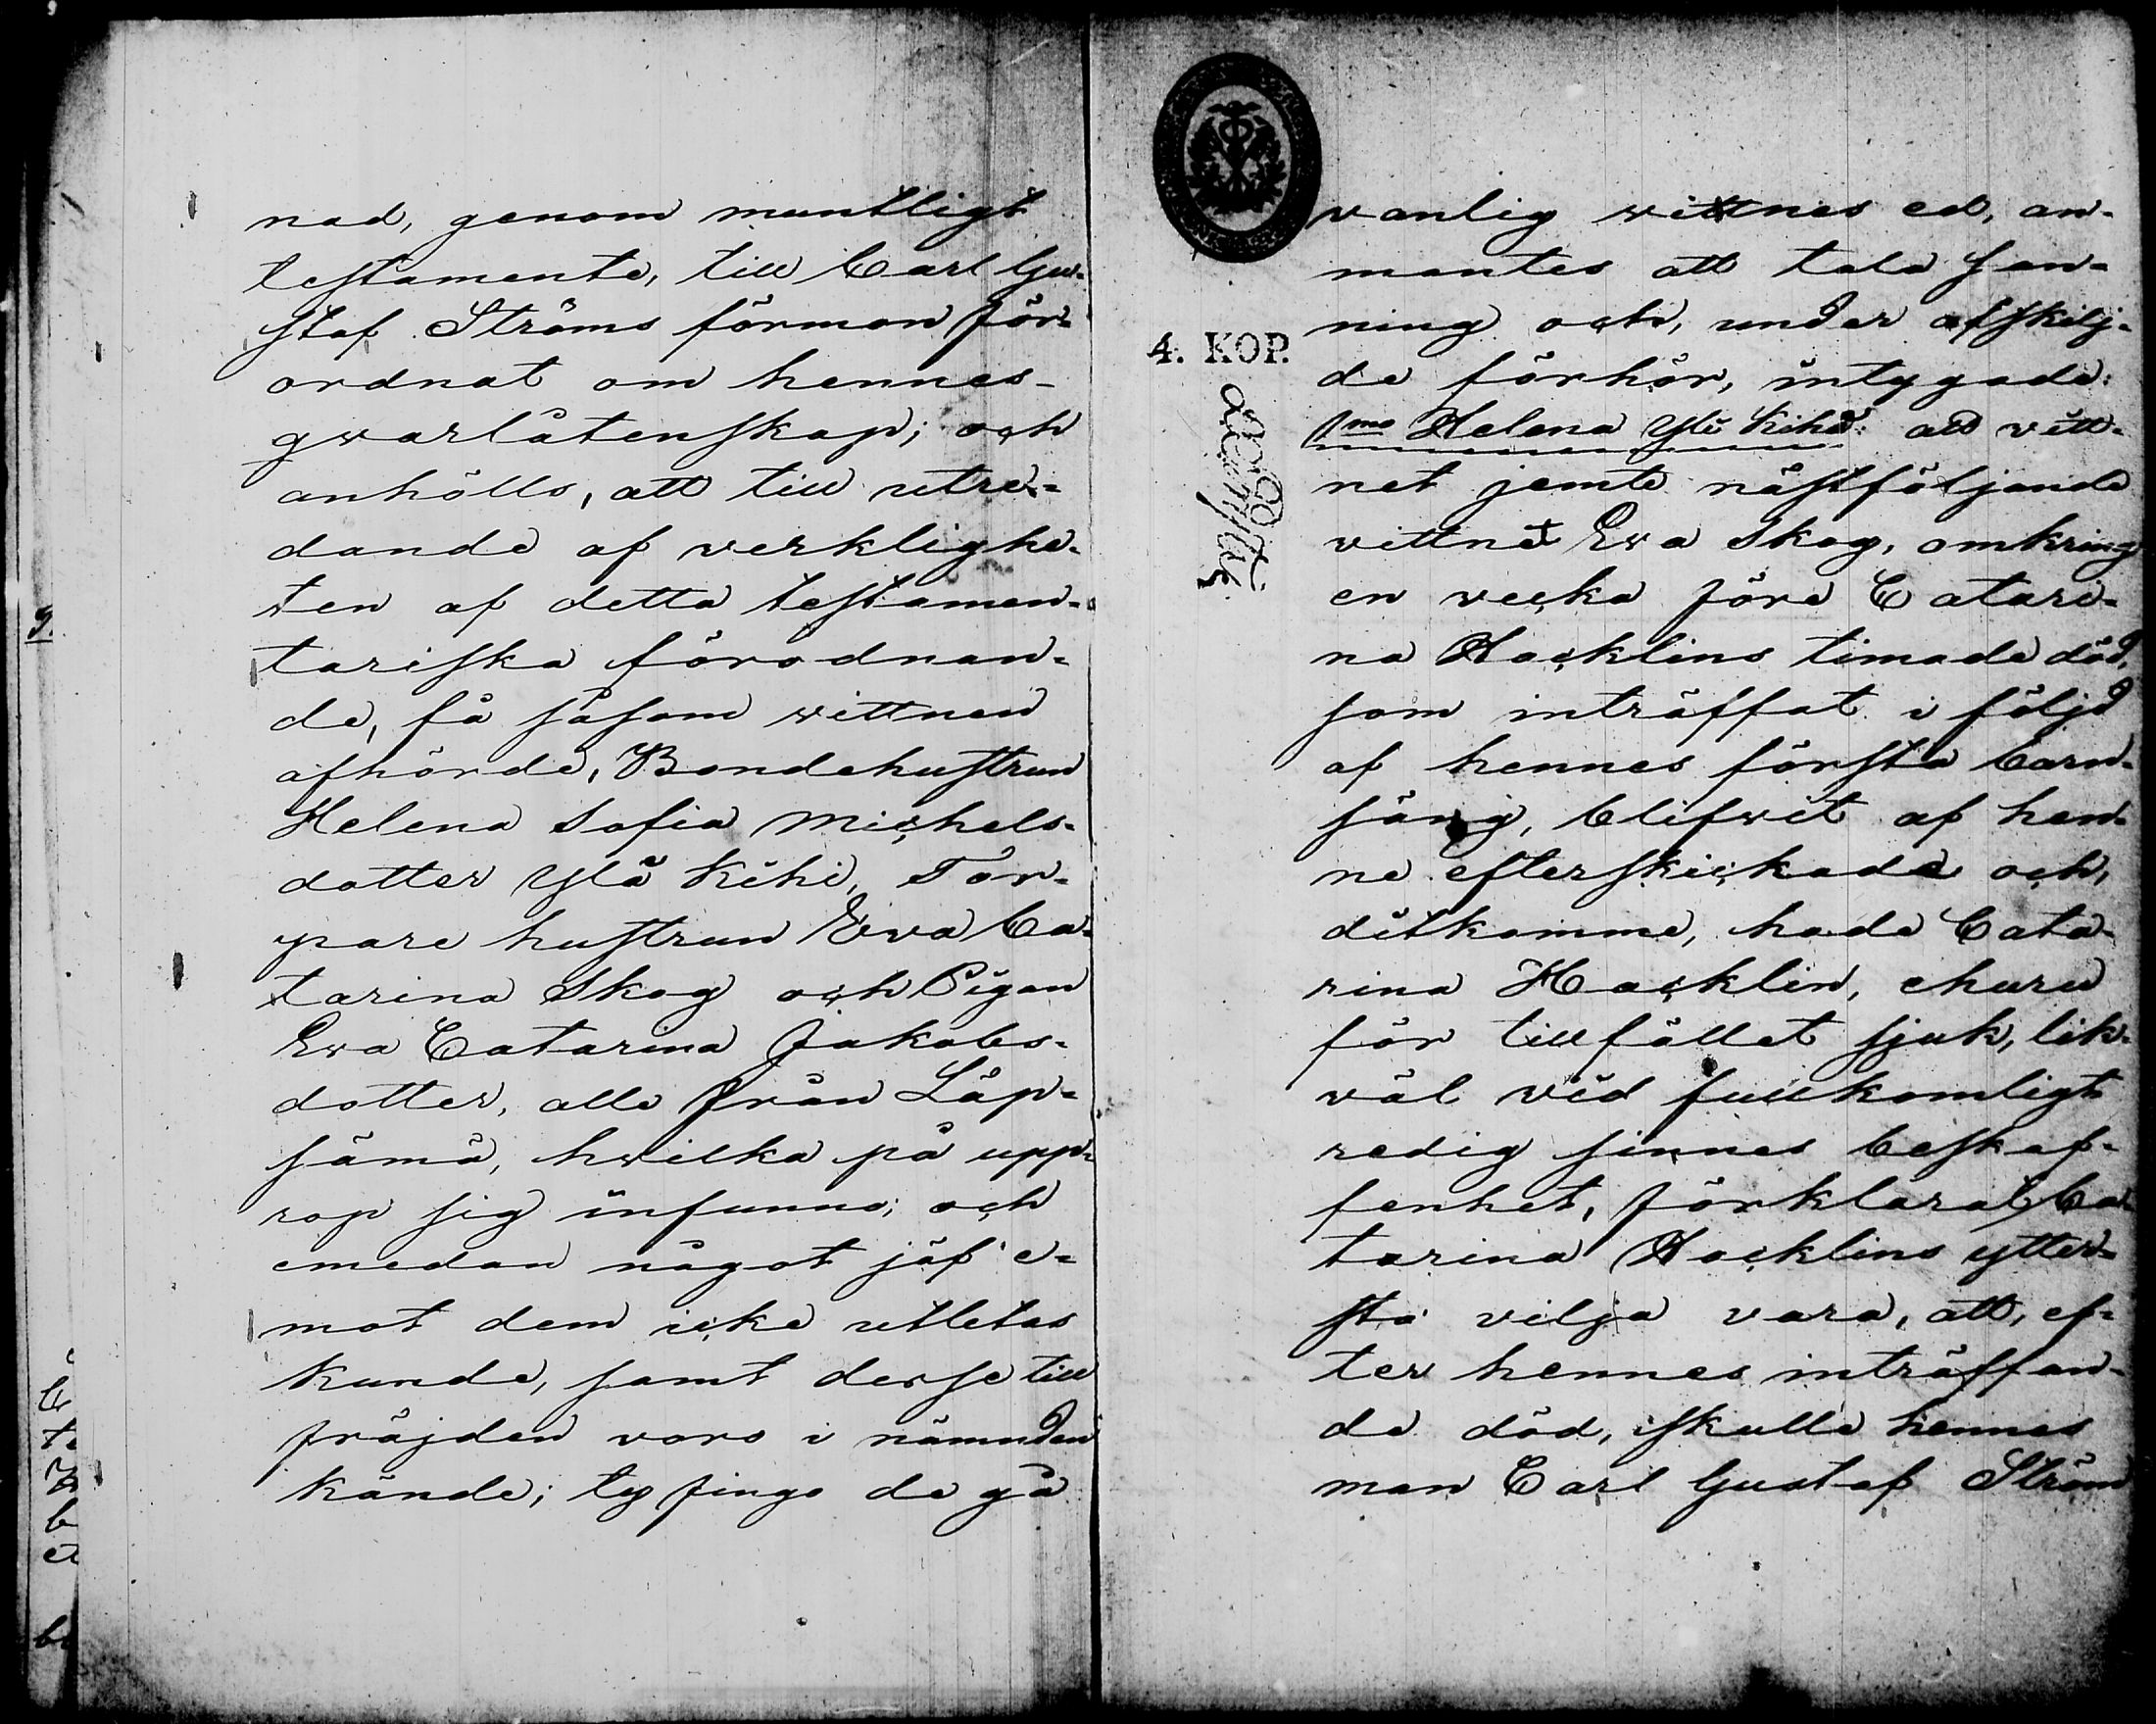 nad, genom muntligt
testamente, till Carl Gu-
staf Ströms förmon för-
ordnat om hennes
qvarlåtenskap; och
anhölls, att till utre-
dande af verklighe-
ten af detta testamen-
tariska förodnan-
de, få såsom wittnen
afhörde, Bondehustrun
Helena Sofia Michels-
dotter Ylä Kihi, Tor-
pare hustrun Eva Ca-
tarina Skog och Pigan
Eva Catarina Jakobs-
dotter, alle från Lap-
sämä, hwilka på upp-
rop sig infunno; och
emedan något jäf e-
mot dem icke utletas
kunde, samt desse till
fräjden voro i nämnden
kände; ty fingo de gå
vanlig wittnes ed, an-
mantes att tala san-
ning och, under afskilj-
4. KOP.
de förhör, intygade:
1mo Helena Ylä Kihi: att vitt-
net jemte nästföljande
vittnet Eva Skog, omkring
en vecka före Catari-
na Hacklins timade död,
som inträffat i följd
af hennes första barn-
säng, blifvit af hen-
ne efterskickade och,
ditkomme, hade Cata-
rina Hacklin, ehuru
för tillfället sjuk, lik-
väl vid fullkomligt
redig sinnes beskaf-
fenhet, förklarat Ca-
tarina Hacklins ytter-
sta vilja vara, att, ef-
ter hennes inträffan-
de död, skulle hennes
man Carl Gustaf Ström